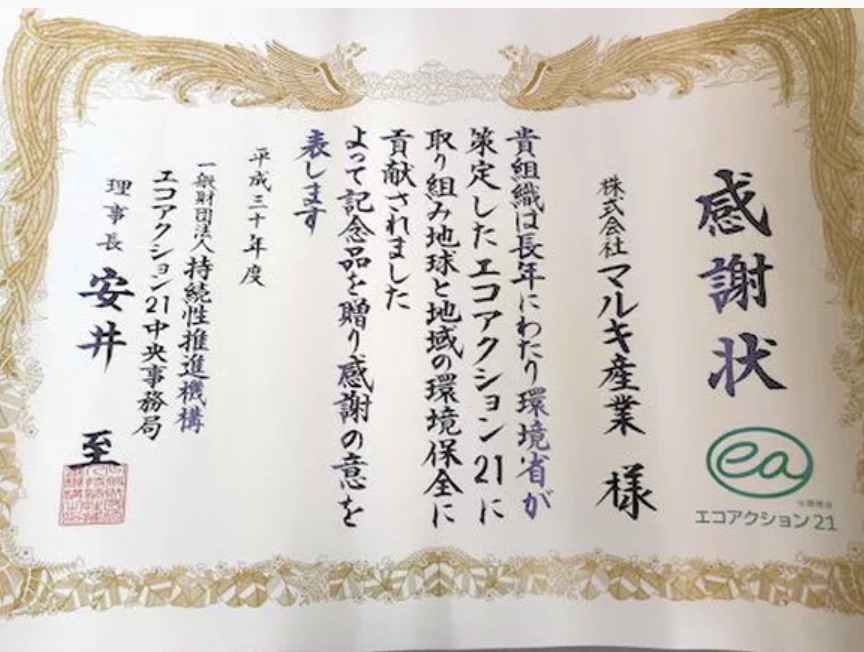 感謝状
ea
エコアクション21
株式会社マルキ産業 様
貴組織は長年にわたり環境省が
策定したエコアクション21に
取り組み地球と地域の環境保全に
貢献されました
よって記念品を贈り感謝の意を
表します
平成三十年度
一般財団法人持続性推進機構
エコアクション21中央事務局
理事長 安井 至